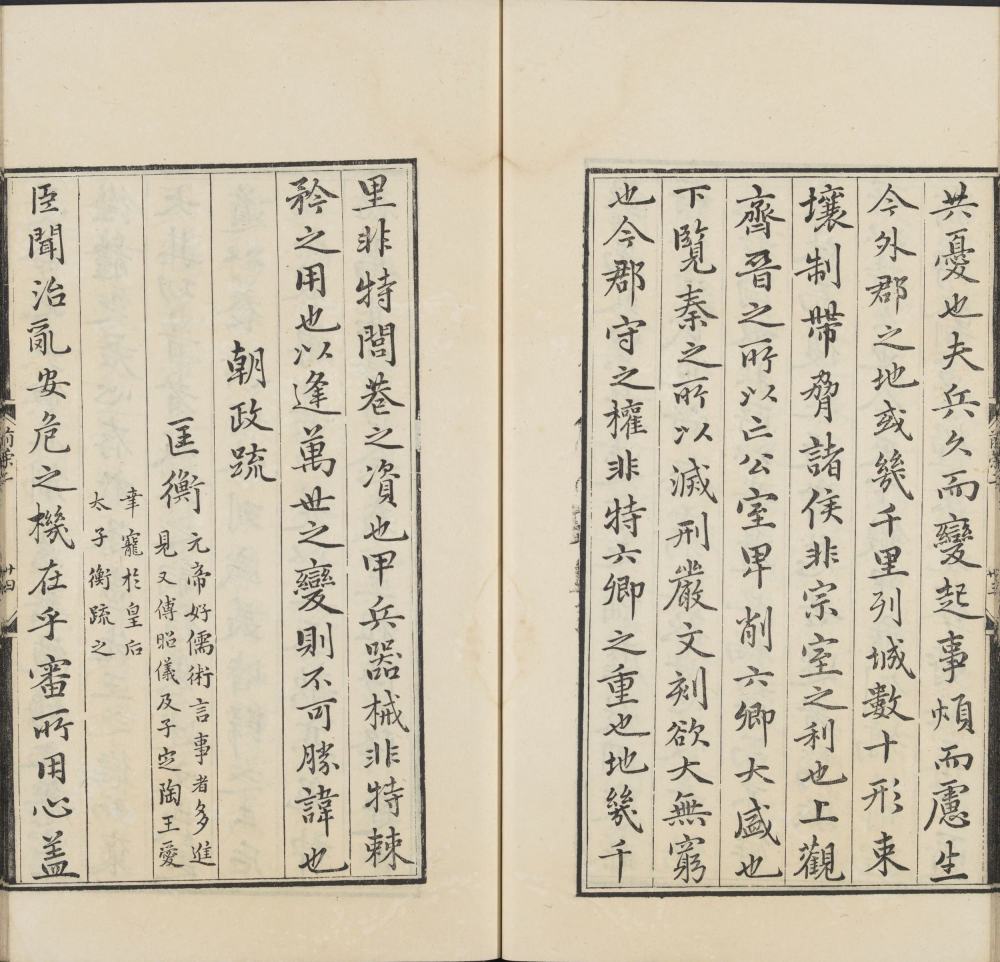 共憂也夫兵久而變起事煩而慮生
今外郡之地或幾千里列城數十形束
壤制帶脅諸侯非宗室之利也上觀
齊晉之所以亡公室卑削六卿大盛也
下覽秦之所以滅刑嚴文刻欲大無窮
也今郡守之權非特六卿之重也地幾千
里非特閭巷之資也甲兵器械非特棘
矜之用也以逢萬世之變則不可勝諱也
朝政疏
匡衡
元帝好儒術言事者多進
見又傅昭儀及子定陶王愛
幸寵於皇后
太子衡疏之
臣聞治亂安危之機在乎審所用心蓋